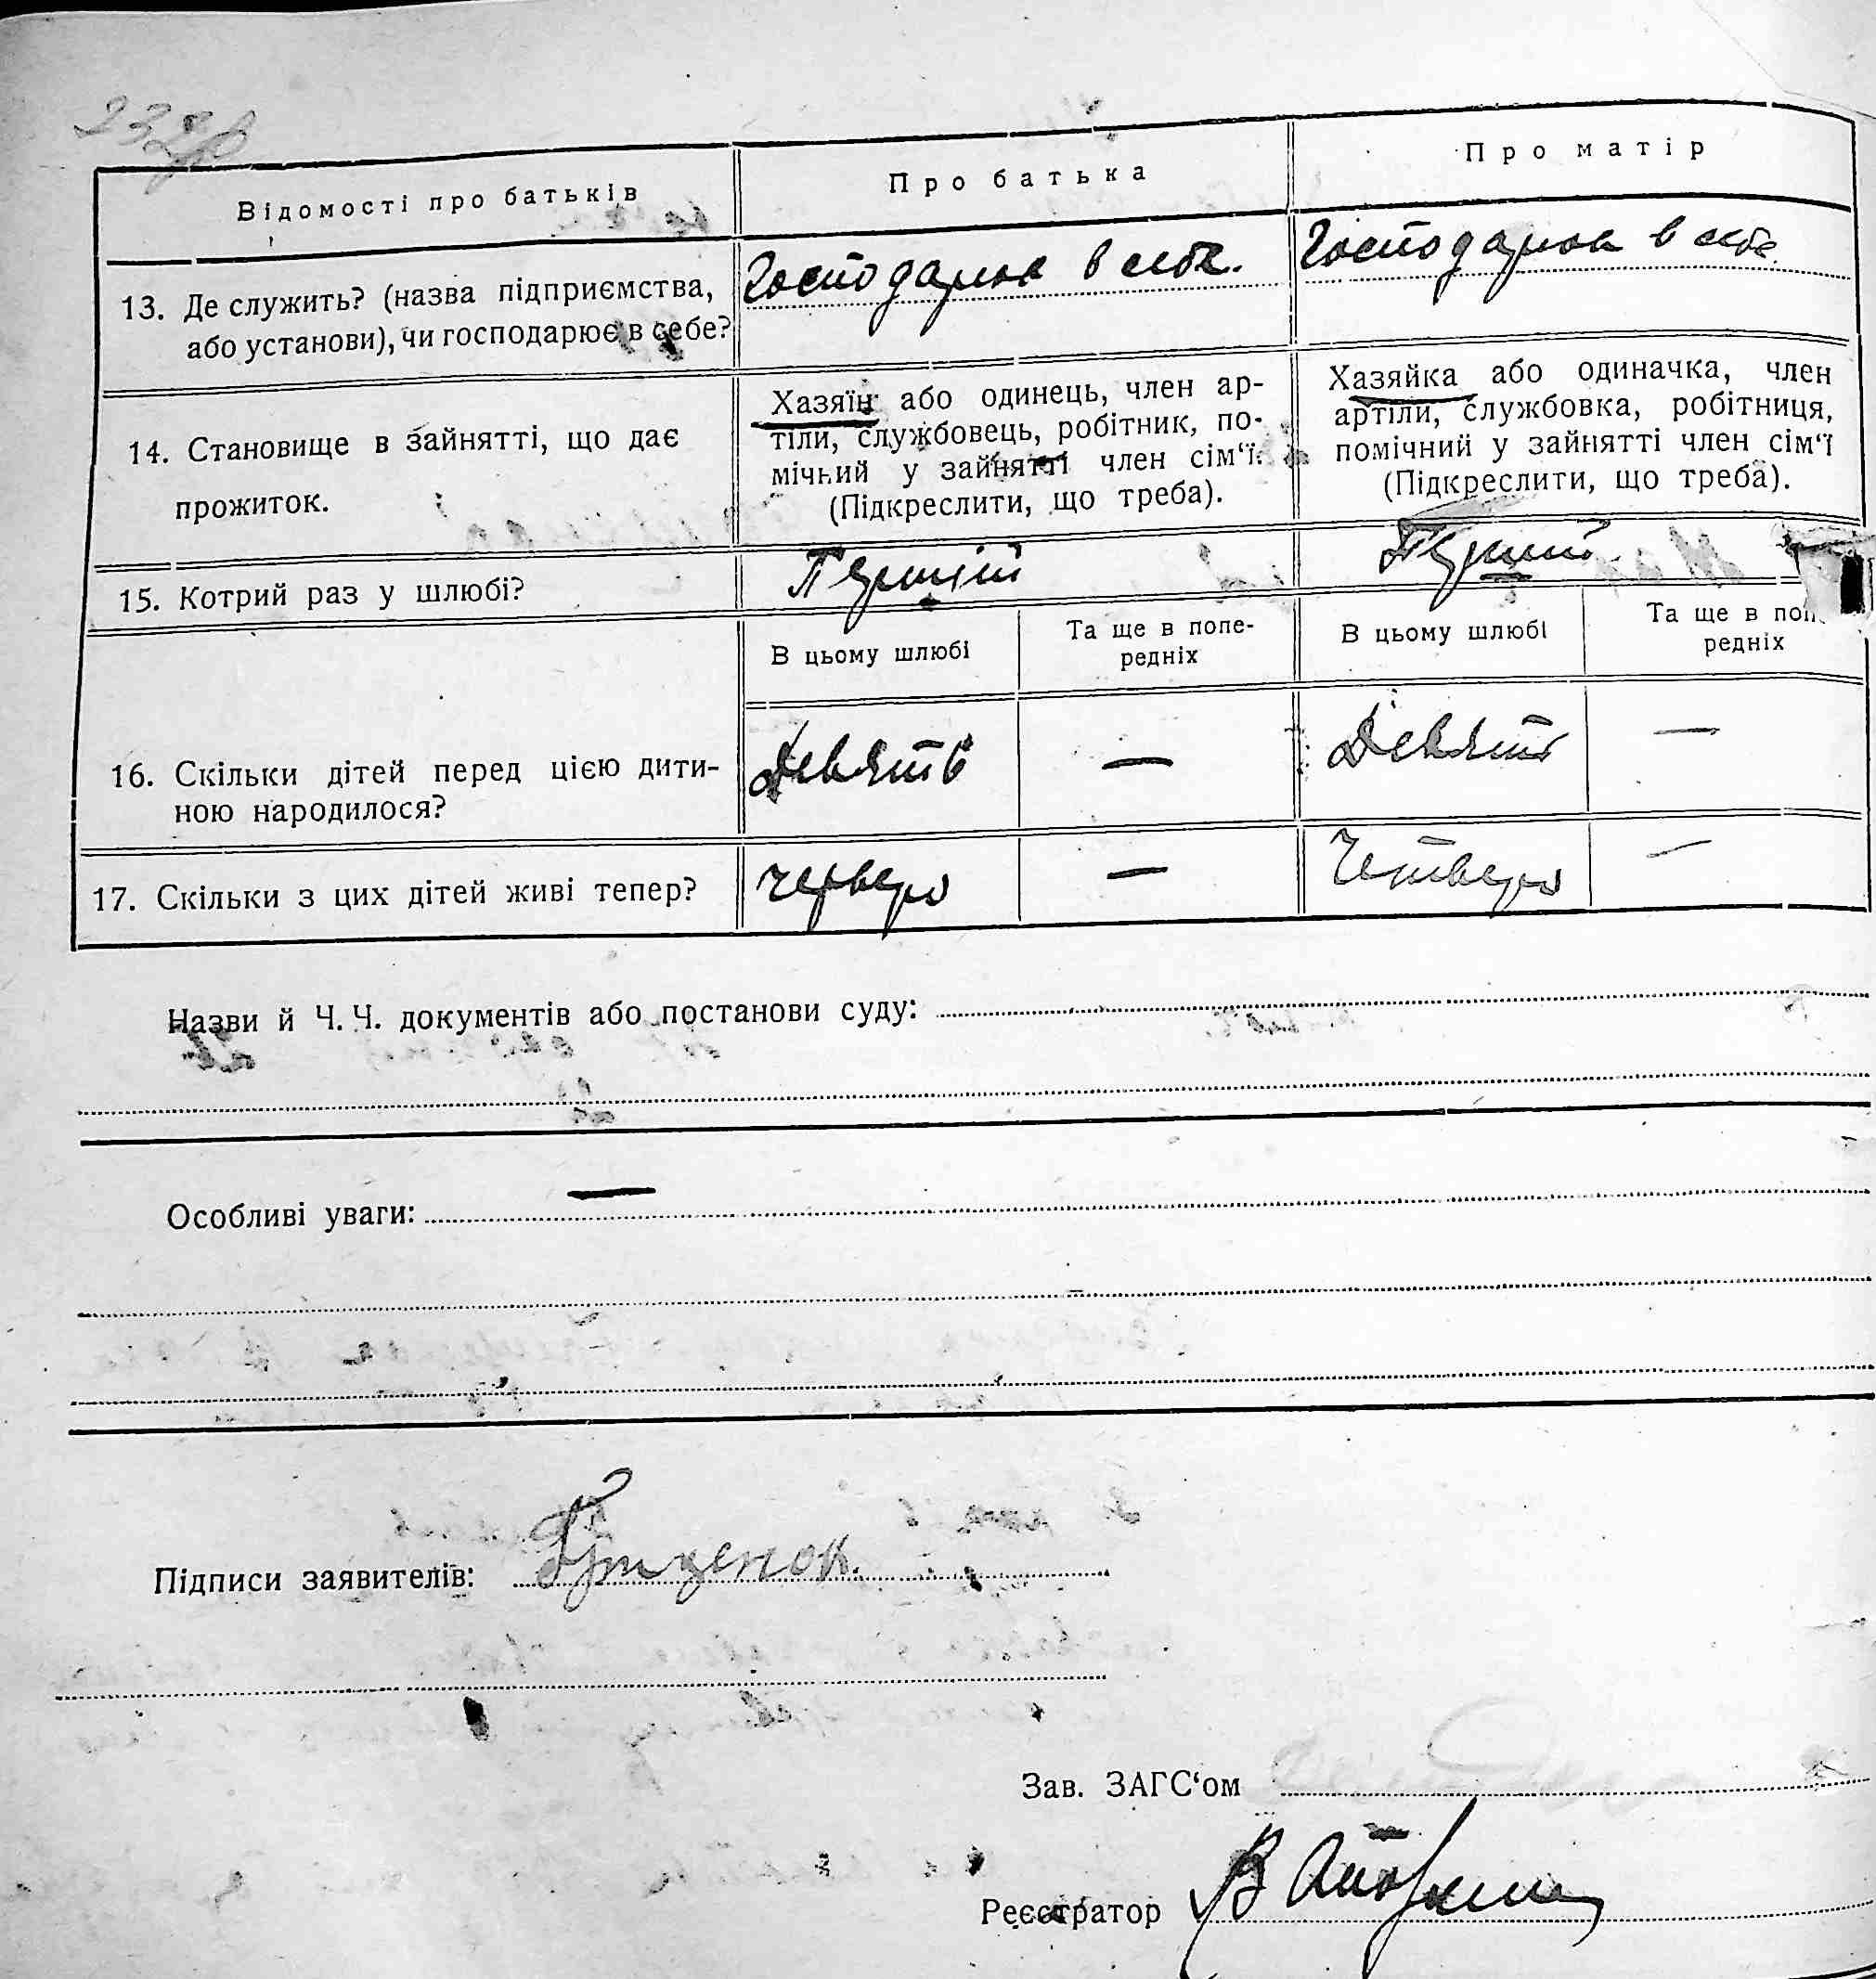 232
Відомості про батьків
Про батька
Про матір
13. Де служить? (назва підприємства,
або установи), чи господарює в себе?
Господарює в себе.
Господарює в себе
14. Становище в зайнятті, що дає
прожиток.
Хазяїн або одинець, член ар-
тіли, службовець, робітник, по-
мічний у зайнятті член сім'ї.
(Підкреслити, що треба).
Хазяйка або одиначка, член
артіли, службовка, робітниця,
помічний у зайнятті член сім'ї
(Підкреслити, що треба).
15. Котрий раз у шлюбі?
Перший
Перший
В цьому шлюбі
Та ще в попе-
редніх
В цьому шлюбі
Та ще в поп
редніх
16. Скільки дітей перед цією дити-
ною народилося?
Девять
—
Девять
—
17. Скільки з цих дітей живі тепер?
—
Четверо
—
Назви й Ч. Ч. документів або постанови суду:
Особливі уваги: —
Підписи заявителів:
Зав. ЗАГС'ом
Реєстратор